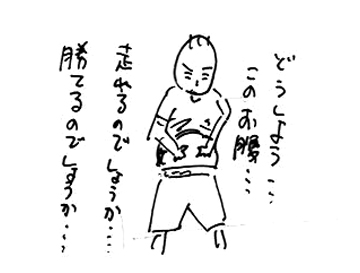 どうしよう…
このお腹…
走れるのでしょうか…
勝てるのでしょうか…